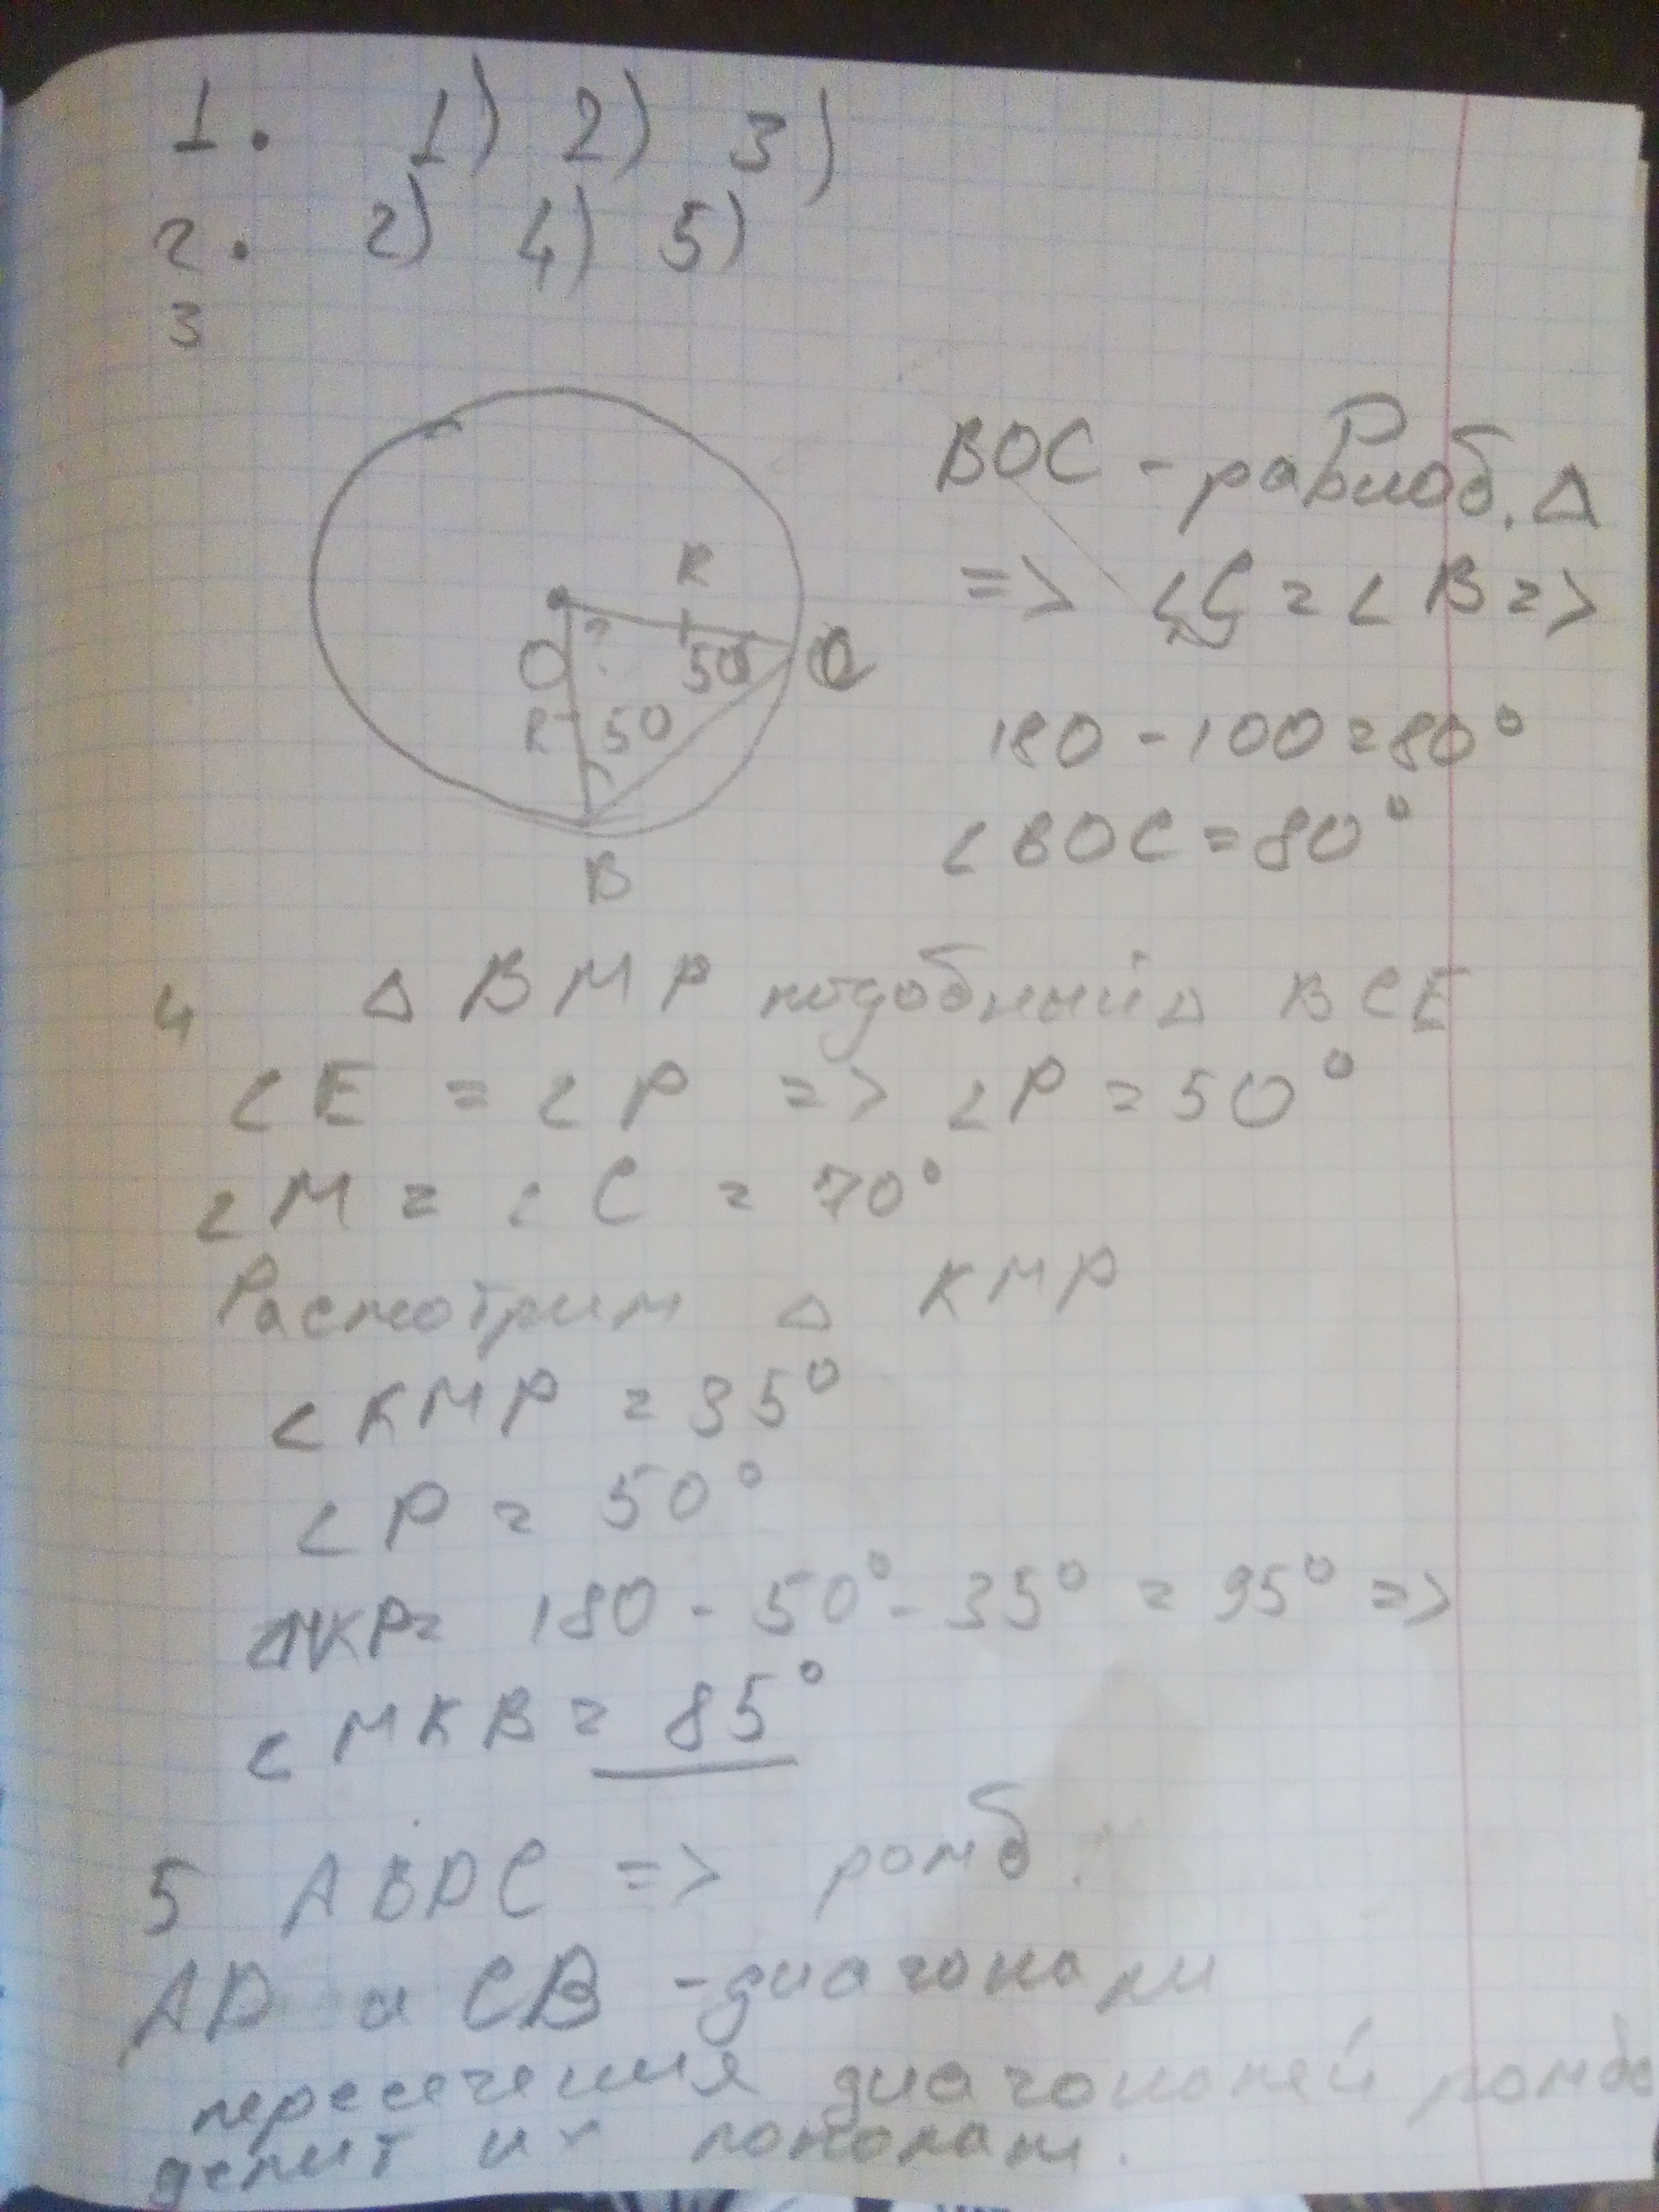 1. 1) 2) 3)
2. 2) 4) 5)
3
BOC - равноб. Δ
=> ∠C = ∠B =>
R
O ? 50 C
R 50
180 - 100 = 80°
∠BOC = 80°
B
4 Δ BMP подобный Δ BCE
∠E = ∠P => ∠P = 50°
∠M = ∠C = 70°
Расмотрим Δ KMP
∠KMP = 35°
∠P = 50°
∠MKP = 180 - 50° - 35° = 95° =>
∠MKB = 85°
5 ABDC => ромб.
AD и CB - диагонали
пересечения диагоналей ромба
делит их пополам.